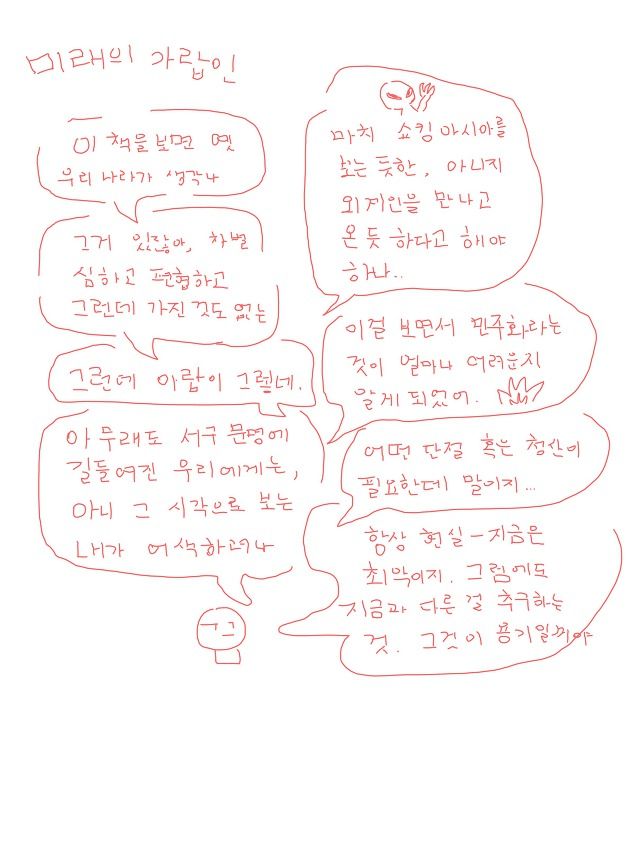 미래의 가랍인
이 책을 보면 옛
우리나라가 생각나
그거 있잖아, 차별
심하고 편협하고
그런데 가진 것도 없는
그런데 아랍이 그렇네.
아무래도 서구 문명에
길들여진 우리에게는,
아니 그 시각으로 보는
내가 어색하려나
마치 쇼킹아시아를
보는 듯한, 아니지
외계인을 만나고
온 듯 하다고 해야
하나..
이걸 보면서 민주화라는
것이 얼마나 어려운지
알게 되었어.
어떤 단절 혹은 청산이
필요한데 말이지...
항상 현실-지금은
최악이지. 그럼에도
지금과 다른 걸 추구하는
것. 그것이 용기일꺼야